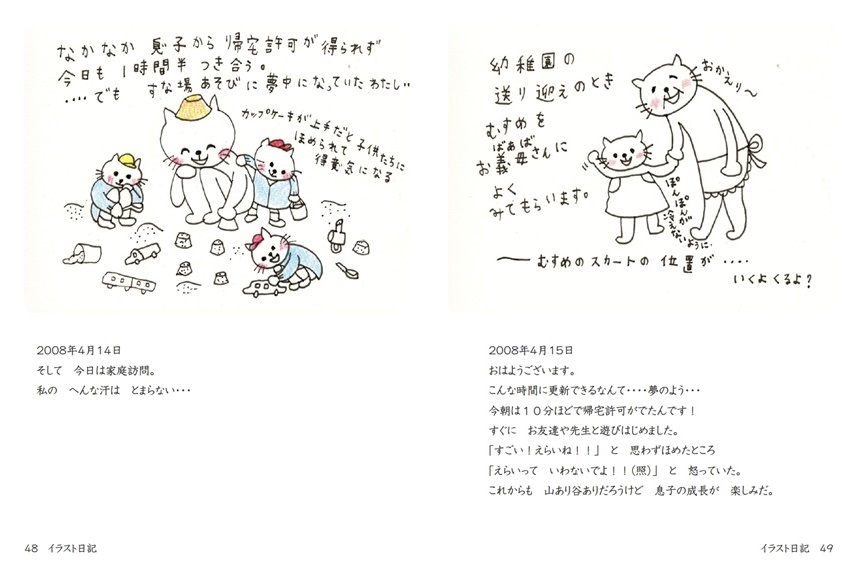 なかなか 息子から帰宅許可が得られず
今日も 1時間半 つき合う。
....でも すな場あそびに夢中になっていたわたし…
カップケーキが上手だと子供たちに
ほめられて
得意気になる
2008年4月14日
そして 今日は家庭訪問。
私の へんな汗は とまらない・・・
48 イラスト日記
幼稚園の
送り迎えのとき
むすめを
ばあば
お義母さんに
よく
みてもらいます。
おかえり〜
ぽんぽんが
冷えないように…
── むすめのスカートの 位置が ....
いくよくるよ?
2008年4月15日
おはようございます。
こんな時間に更新できるなんて・・・・夢のよう・・・
今朝は10分ほどで帰宅許可がでたんです!
すぐに お友達や先生と遊びはじめました。
「すごい!えらいね!!」 と 思わずほめたところ
「えらいって いわないでよ!!(照)」 と 怒っていた。
これからも 山あり谷ありだろうけど 息子の成長が 楽しみだ。
イラスト日記 49